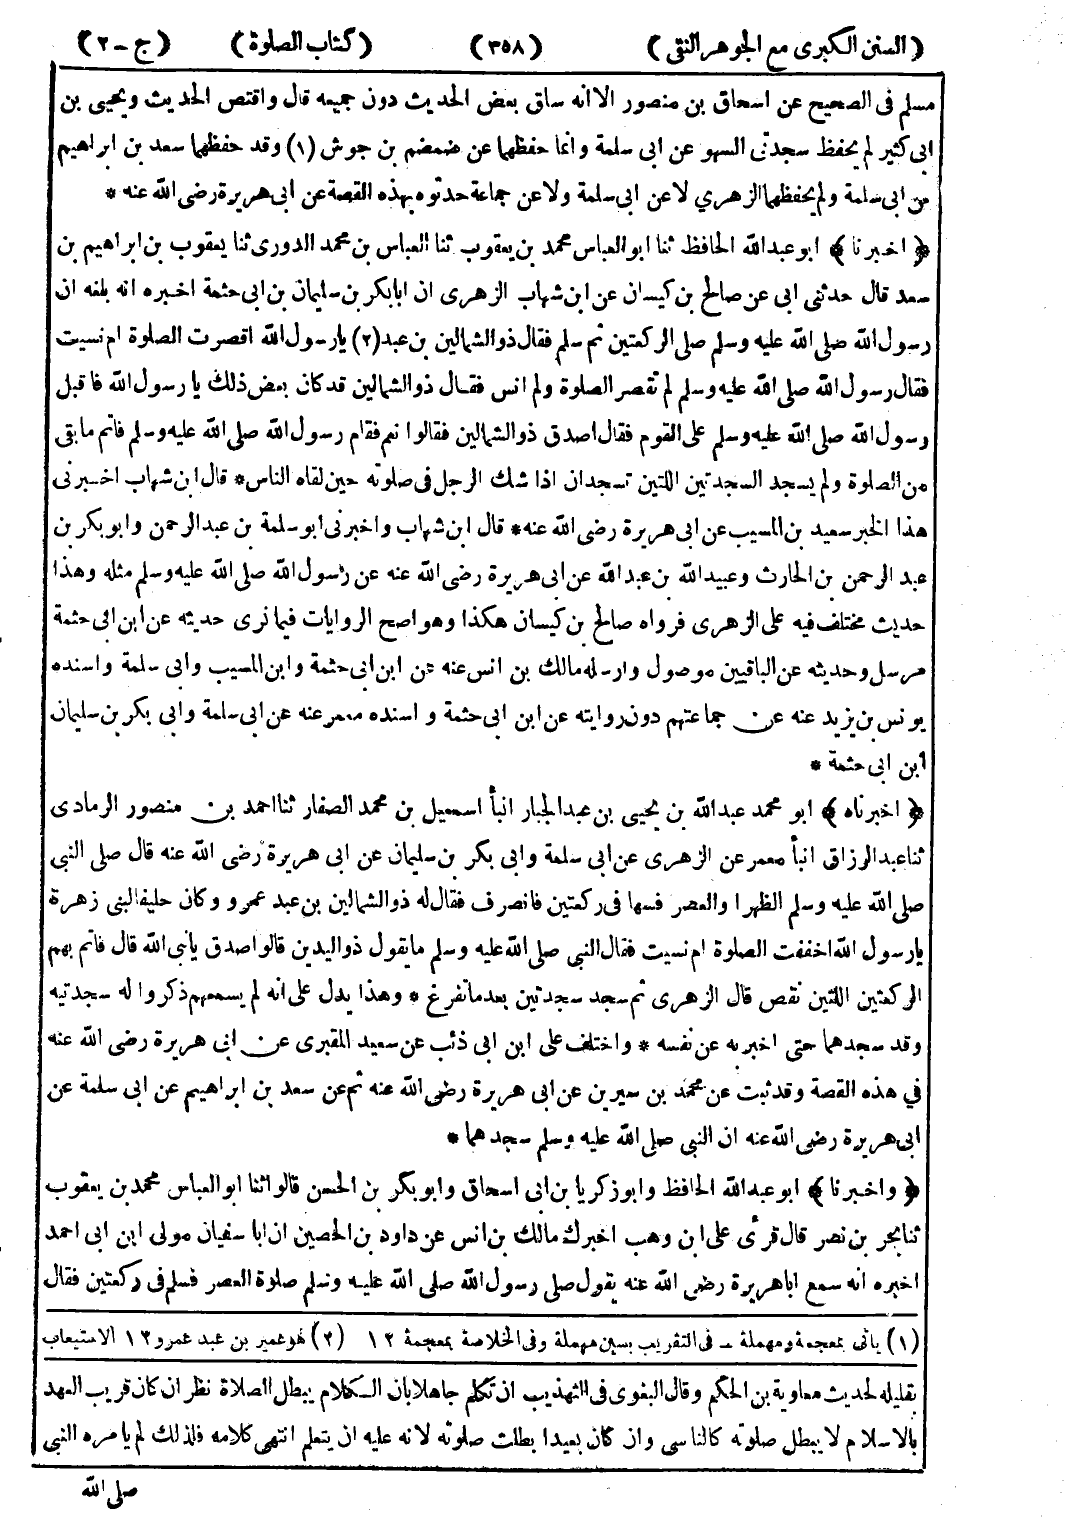 ( السنن الكبرى مع الجوهر النقى ) ( ٣٥٨ ) ( كتاب الصلوة ) ( ج - ٢ )
مسلم فى الصحيح عن اسحاق بن منصور الا انه ساق بعض الحديث دون جميعه قال واقتص الحديث ويحيى بن
ابى كثير لم يحفظ سجدتى السهو عن ابى سلمة وانما حفظها عن ضمضم بن جوش (١) وقد حفظهما سعد بن ابراهيم
من ابى سلمة ولم يحفظهما الزهري لا عن ابى سلمة ولا عن جماعة حدثوه بهذه القصة عن ابى هريرة رضى الله عنه *
﴿ اخبرنا ﴾ ابو عبد الله الحافظ ثنا ابو العباس محمد بن يعقوب ثنا العباس بن محمد الدورى ثنا يعقوب بن ابراهيم بن
سعد قال حدثنى ابى عن صالح بن كيسان عن ابن شهاب الزهرى ان ابا بكر بن سليمان بن ابى حثمة اخبره انه بلغه ان
رسول الله صلى الله عليه وسلم صلى الركعتين ثم سلم فقال ذو الشمالين بن عبد (٢) يا رسول الله اقصرت الصلوة ام نسيت
فقال رسول الله صلى الله عليه وسلم لم تقصر الصلوة ولم انس فقال ذو الشمالين قد كان بعض ذلك يا رسول الله فاقبل
رسول الله صلى الله عليه وسلم على القوم فقال اصدق ذو الشمالين فقالوا نعم فقام رسول الله صلى الله عليه وسلم فاتم ما بقى
من الصلوة ولم يسجد السجدتين اللتين تسجدان اذا شك الرجل فى صلوته حين لقاه الناس * قال ابن شهاب اخبرنى
هذا الخبر سعيد بن المسيب عن ابى هريرة رضى الله عنه * قال ابن شهاب واخبرنى ابو سلمة بن عبد الرحمن وابو بكر بن
عبد الرحمن بن الحارث وعبيد الله بن عبد الله عن ابى هريرة رضى الله عنه عن رسول الله صلى الله عليه وسلم مثله وهذا
حديث مختلف فيه على الزهرى فرواه صالح بن كيسان هكذا وهو اصح الروايات فيما نرى حديثه عن ابن ابى حثمة
مرسل وحديثه عن الباقيين موصول وارسله مالك بن انس عنه عن ابن ابى حثمة وابن المسيب وابى سلمة واسنده
يونس بن يزيد عنه عن جماعتهم دون روايته عن ابن ابى حثمة و اسنده معمر عنه عن ابى سلمة وابى بكر بن سليمان
ابن ابى حثمة *
﴿ اخبرناه ﴾ ابو محمد عبد الله بن يحيى بن عبد الجبار انبأ اسمعيل بن محمد الصفار ثنا احمد بن منصور الرمادى
ثنا عبد الرزاق انبأ معمر عن الزهرى عن ابى سلمة وابى بكر بن سليمان عن ابى هريرة رضى الله عنه قال صلى النبى
صلى الله عليه وسلم الظهر ا والعصر فسها فى ركعتين فانصرف فقال له ذو الشمالين بن عبد عمرو وكان حليفا لبنى زهرة
يا رسول الله اخففت الصلوة ام نسيت فقال النبى صلى الله عليه وسلم ما يقول ذو اليدين قالوا صدق يا نبى الله قال فاتم بهم
الركعتين اللتين نقص قال الزهرى ثم سجد سجدتين بعد ما تفرغ * وهذا يدل على انه لم يسمعهم ذكروا له سجدتيه
وقد سجدهما حتى اخبر به عن نفسه * واختلف على ابن ابى ذئب عن سعيد المقبرى عن ابى هريرة رضى الله عنه
في هذه القصة وقد ثبت عن محمد بن سيرين عن ابى هريرة رضى الله عنه ثم عن سعد بن ابراهيم عن ابى سلمة عن
ابى هريرة رضى الله عنه ان النبى صلى الله عليه وسلم سجدهما *
﴿ واخبرنا ﴾ ابو عبد الله الحافظ وابو زكريا بن ابى اسحاق وابو بكر بن الحسن قالوا ثنا ابو العباس محمد بن يعقوب
ثنا بحر بن نصر قال قرئ على ابن وهب اخبرك مالك بن انس عن داود بن الحصين ان ابا سفيان مولى ابن ابى احمد
اخبره انه سمع ابا هريرة رضى الله عنه يقول صلى رسول الله صلى الله عليه وسلم صلوة العصر فسلم فى ركعتين فقال
(١) ياتى بمعجمة ومهملة - فى التقريب بسين مهملة وفى الخلاصة بمعجمة ١٢ (٢) هو عمير بن عبد عمرو ١٢ الاستيعاب
بقليله لحديث معاوية بن الحكم وقال البغوى فى التهذيب ان تكلم جاهلا بان الكلام يبطل الصلاة نظر ان كان قريب العهد
بالاسلام لا يبطل صلوته كالناسى وان كان بعيدا بطلت صلوته لانه عليه ان يتعلم انتهى كلامه فلذلك لم يامره النبى
صلى الله